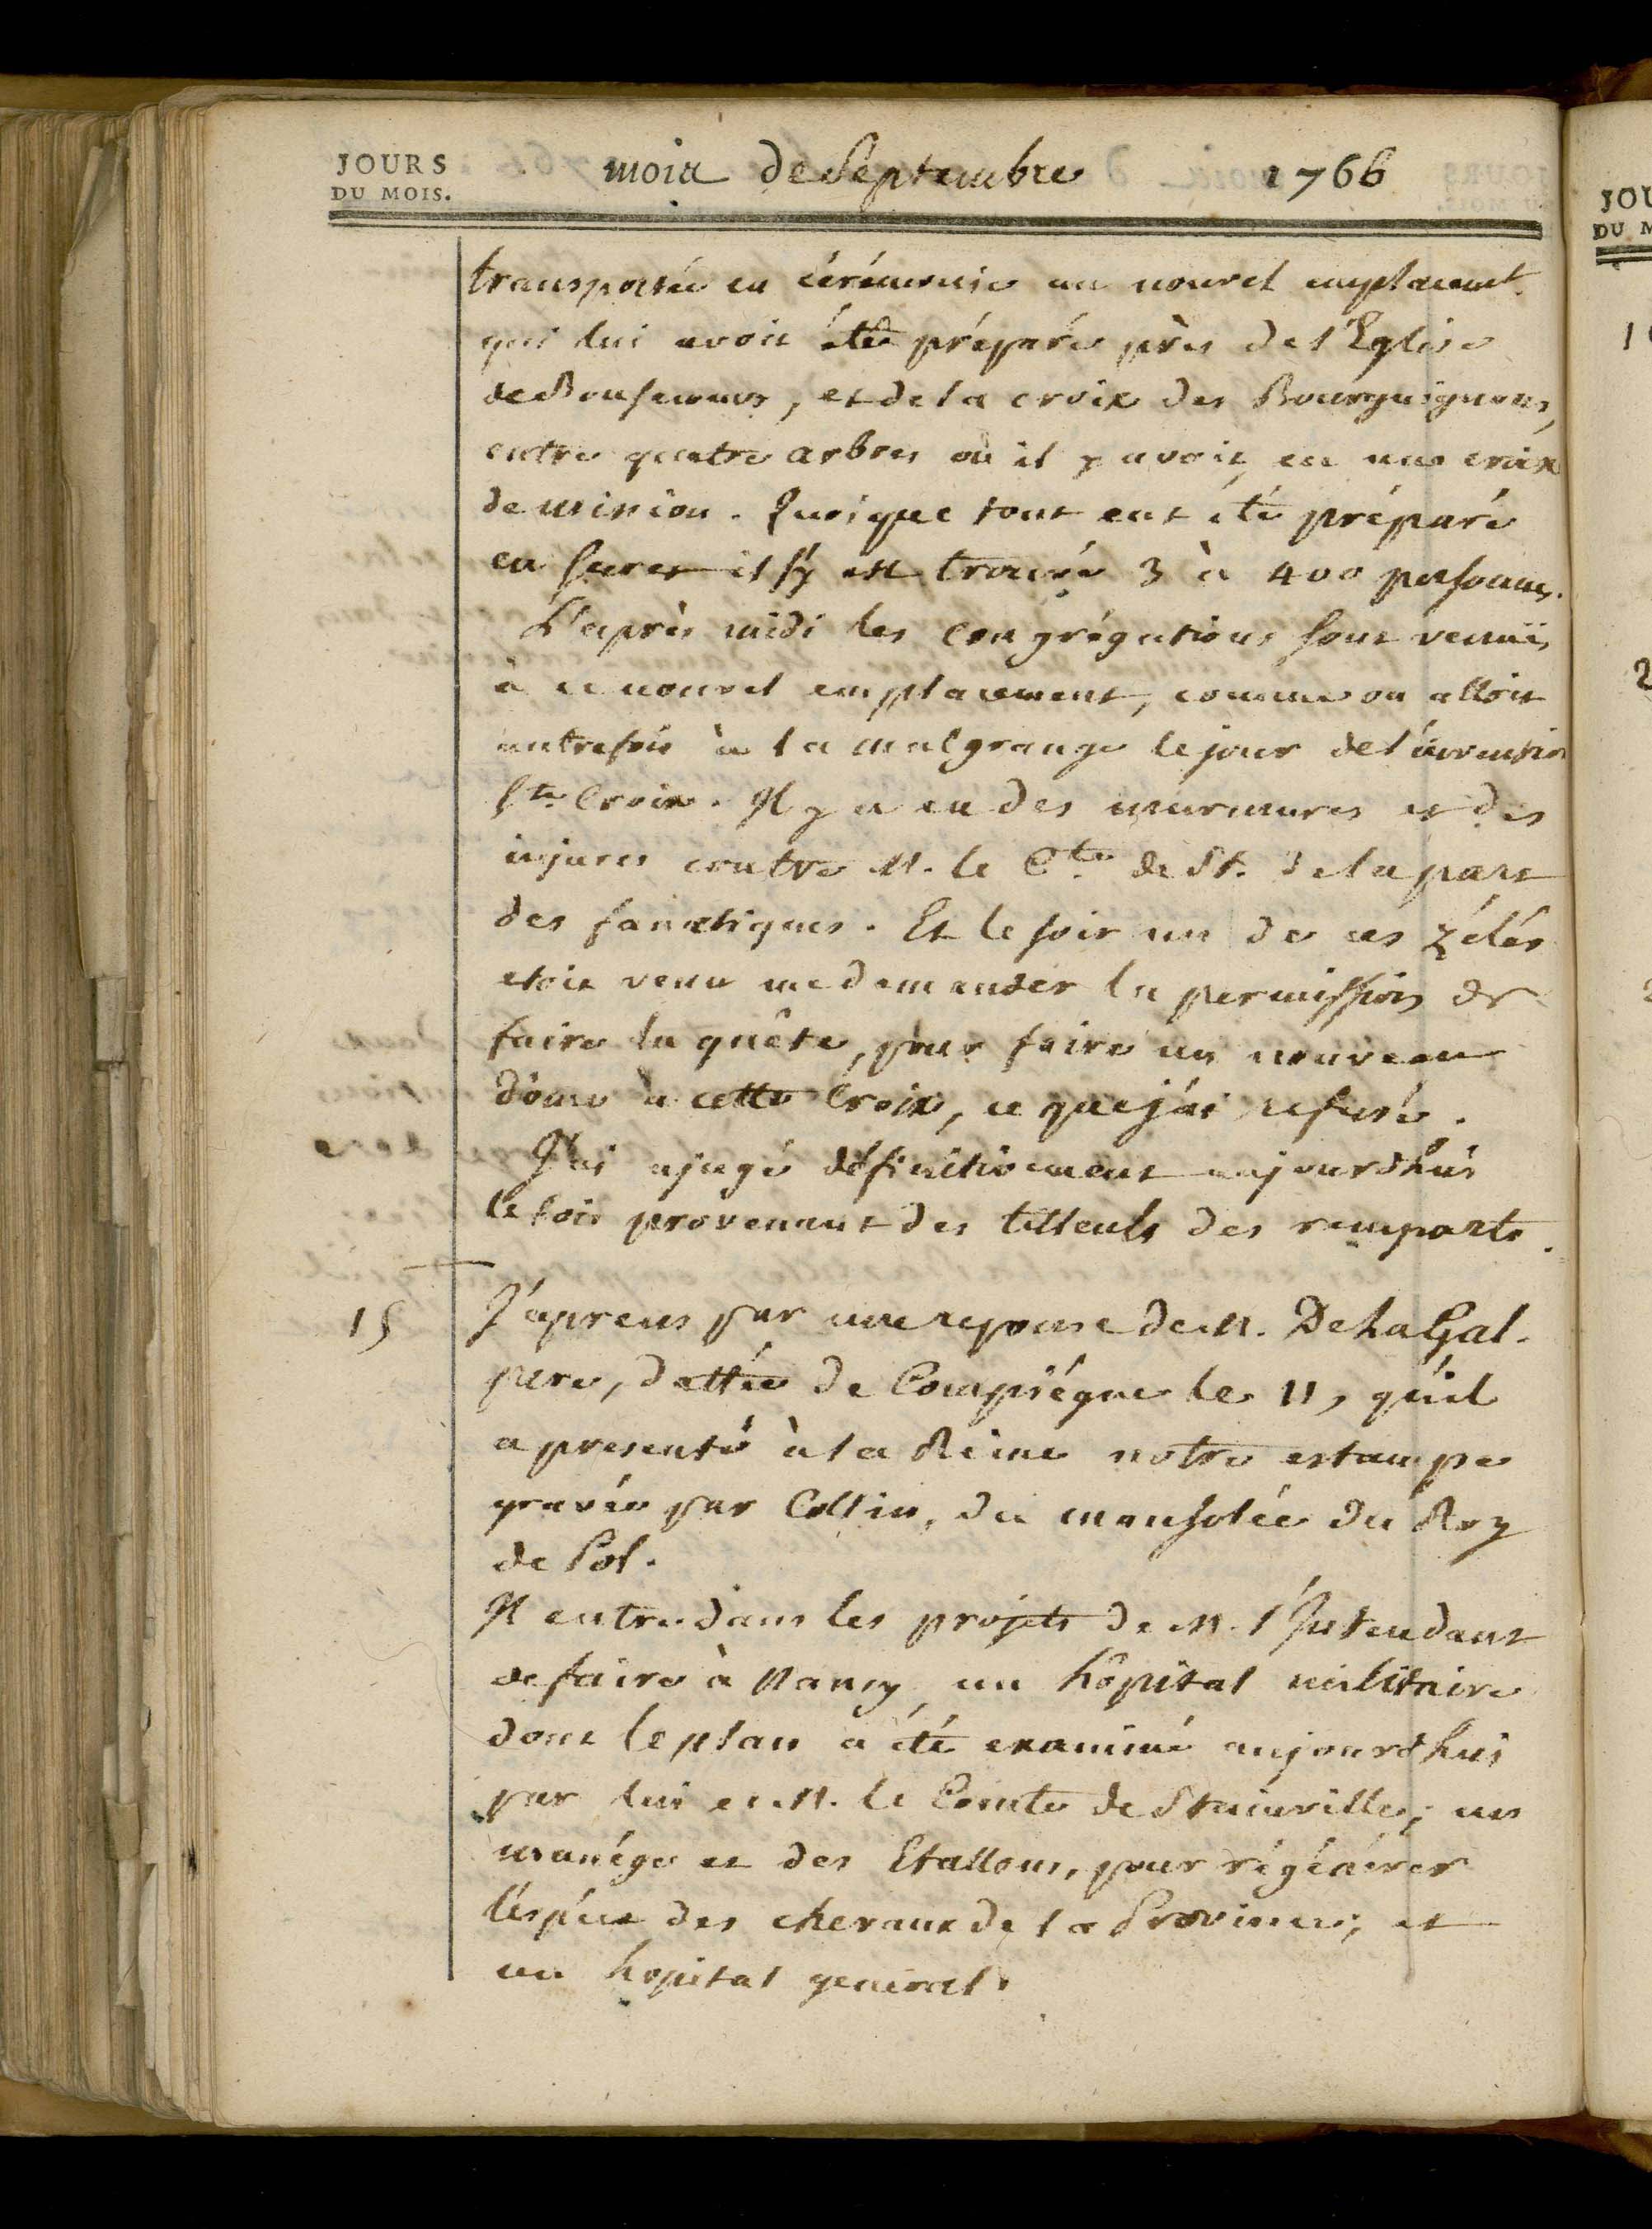 JOURS
DU MOIS.
mois de Septembre 1766
transportée en cérémonie au nouvel emplacemt.
qui lui avoit été préparé près de l'Eglise
de Bonsecours, et de la croix des Bourguignons,
entre quatre arbres où il y avoit eu une croix
de mission. Quoique tout eut été préparé
en secret il s'y est trouvé 3 à 400 personnes.
L'après midi les congrégations sont venuës
à ce nouvel emplacement, comme on alloit
autrefois à la malgrange le jour de l'invention
Ste. Croix. Il y a eu des murmures et des
injures contre M. le Cte. de St. de la part
des fanatiques. Et le soir un de ces zélés
etoit venu me demander la permission de
faire la quête, pour faire un nouveau
dôme à cette Croix, ce que j'ai refusé.
J'ai ajugé définitivement aujourdhui
le bois provenant des tilleuls des remparts.
15
J'aprens par une reponse de M. De La Gal.
pere, dattée de Compiégne le 11, qu'il
a presenté à la Reine notre estampe
gravée par Collin, du mausolée du Roy
de Pol.
Il entre dans les projets de M. l'Intendant
de faire à Nancy, un hôpital militaire
dont le plan a été examiné aujourdhui
par lui et M. le Comte de Stainville; un
manége et des Etallons, pour régénérer
l'espéce des chevaux de la Province; et
un hopital general.
JOU
DU M